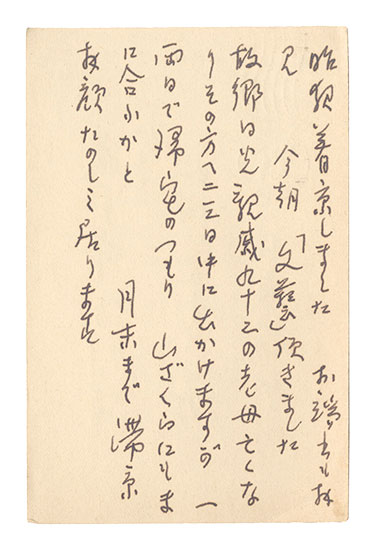 昨夜着京しました お端書も拝
見 今朝「文藝」頂きました
故郷日光親戚九十三の老母亡くな
りその方へ二三日中に出かけますが 一
両日で帰宅のつもり 山ざくらにもま
に合ふかと 月末まで滞京
お顔たのしミ居ります